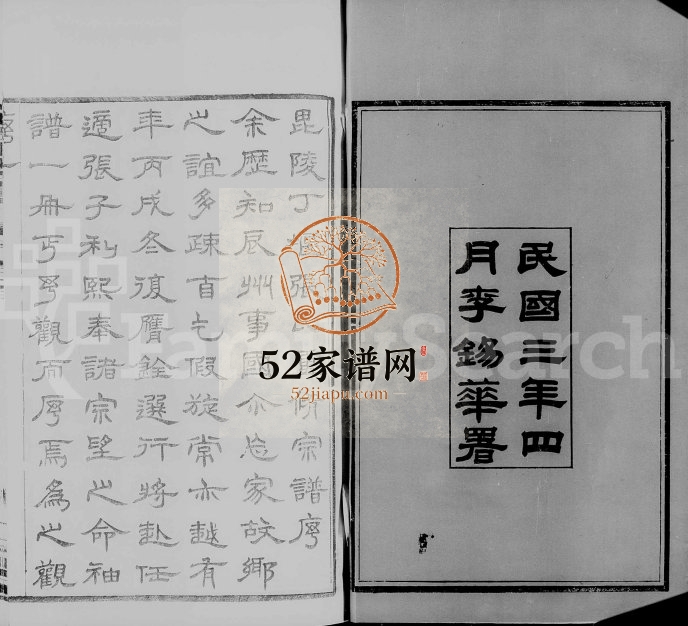 民國三年四
月李錫華署
毘陵丁張脩宗譜序
余歷知辰州事國尒忘家故鄉
之誼多疎乞假旋常亦越有
年丙戌冬復膺銓選行將赴任
適張子利熙奉諸宗望之命袖
譜一冊丐予觀而序焉為之觀
序 一
FamilySearch
52家谱网
52jiapu.com